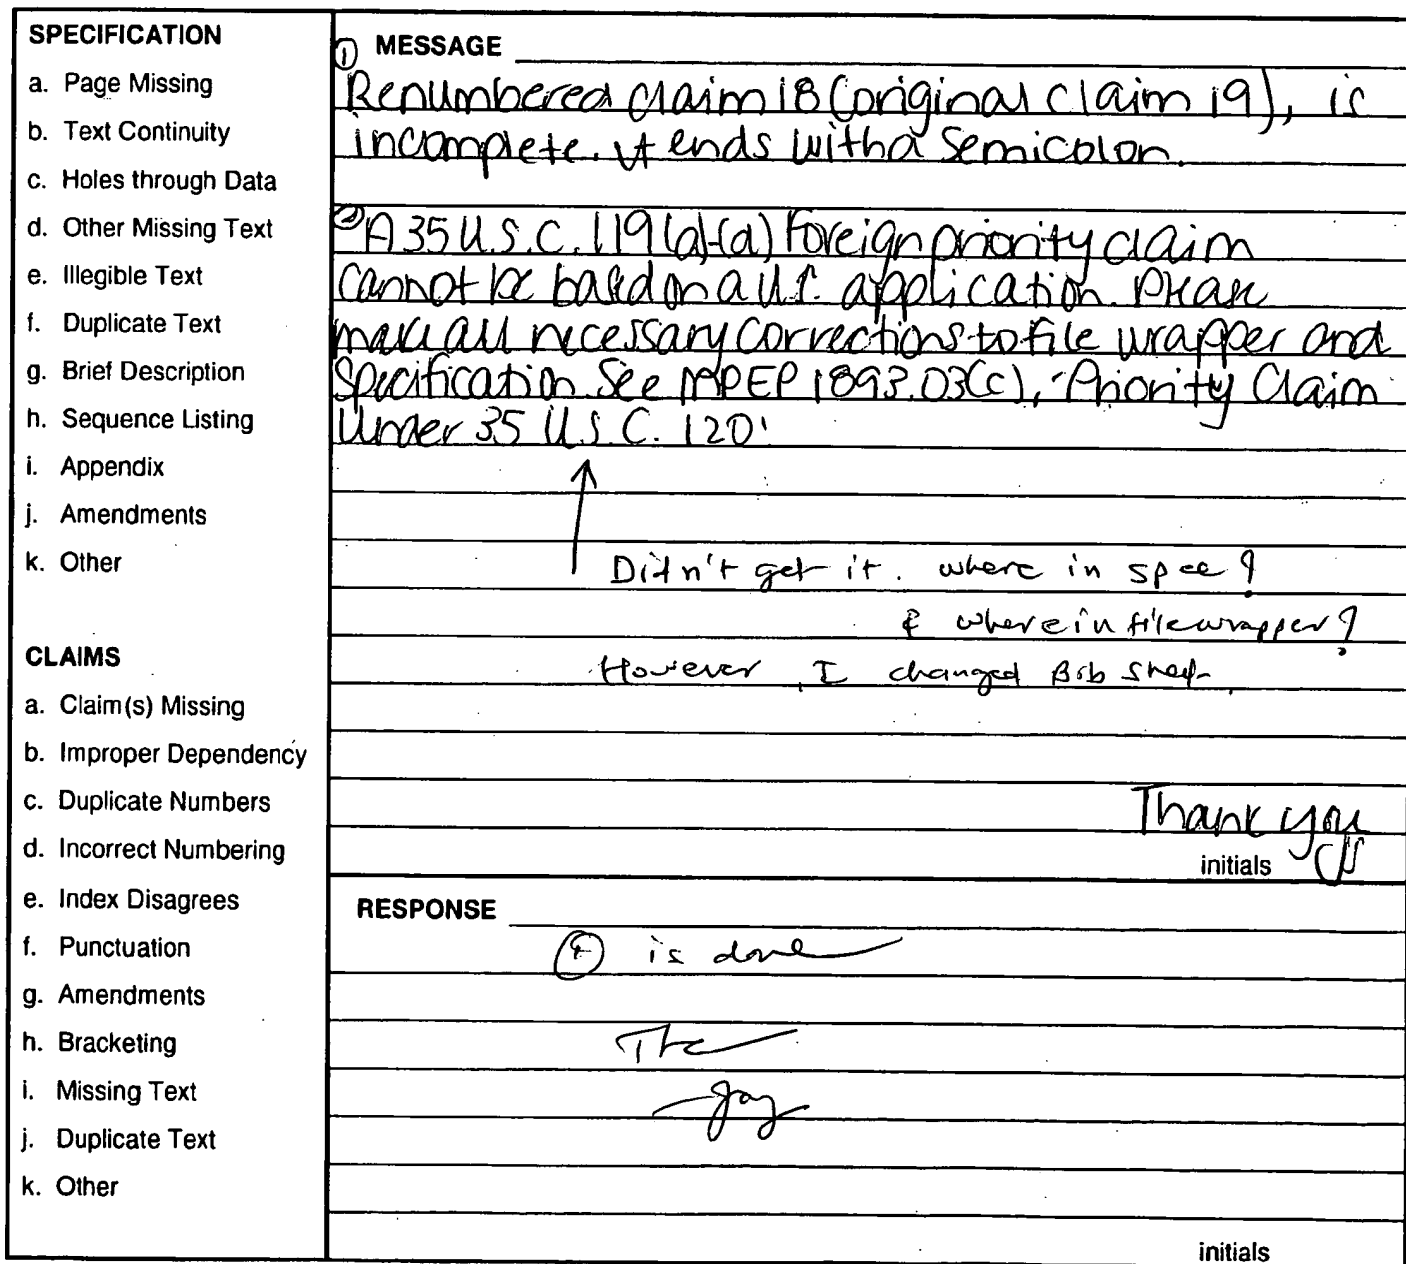 SPECIFICATION
a. Page Missing
b. Text Continuity
c. Holes through Data
d. Other Missing Text
e. Illegible Text
f. Duplicate Text
g. Brief Description
h. Sequence Listing
i. Appendix
j. Amendments
k. Other
CLAIMS
a. Claim(s) Missing
b. Improper Dependency
c. Duplicate Numbers
d. Incorrect Numbering
e. Index Disagrees
f. Punctuation
g. Amendments
h. Bracketing
i. Missing Text
j. Duplicate Text
k. Other
① MESSAGE
Renumbered claim 18 (original claim 19), is
incomplete. It ends with a semicolon.
② A 35 U.S.C. 119 (a)-(d) foreign priority claim
cannot be based on a U.S. application. Please
make all necessary corrections to file wrapper and
specification. See MPEP 1893.03(c), Priority Claim
Under 35 U.S.C. 120.
Didn't get it. where in spec?
& where in file wrapper?
However, I changed Bib sheet.
Thank you
initials
RESPONSE
is done
Jay
initials